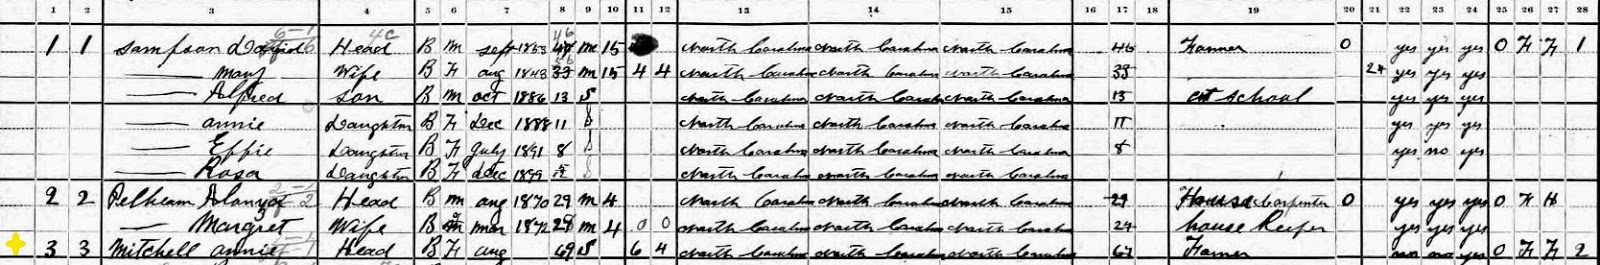 1 2 3 4 5 6 7 8 9 10 11 12 13 14 15 16 17 18 19 20 21 22 23 24 25 26 27 28
1 1 Sampson David Head B m Sept 1853 46 m 15 North Carolina North Carolina North Carolina 46 Farmer 0 yes yes yes 0 F F 1
—— Mary Wife B F aug 1843 m 15 4 4 North Carolina North Carolina North Carolina yes yes yes
—— Alfred Son B m oct 1886 13 S North Carolina North Carolina North Carolina 13 at school yes yes yes
—— annie Daughter B F Dec 1888 11 S North Carolina North Carolina North Carolina 11 yes yes yes
—— Effie Daughter B F July 1891 8 S North Carolina North Carolina North Carolina 8 yes no yes
—— Rosa Daughter B F Dec 1899 S North Carolina North Carolina North Carolina
2 2 Pelham Head B m aug 1870 29 m 4 North Carolina North Carolina North Carolina 29 House Carpenter 0 yes yes yes 0 F H
— Margret Wife B mar 1872 m 4 0 0 North Carolina North Carolina North Carolina house Keeper yes yes yes
3 3 Mitchell annie Head B F aug 69 S 6 4 North Carolina North Carolina North Carolina Farmer no no yes 0 F F 2